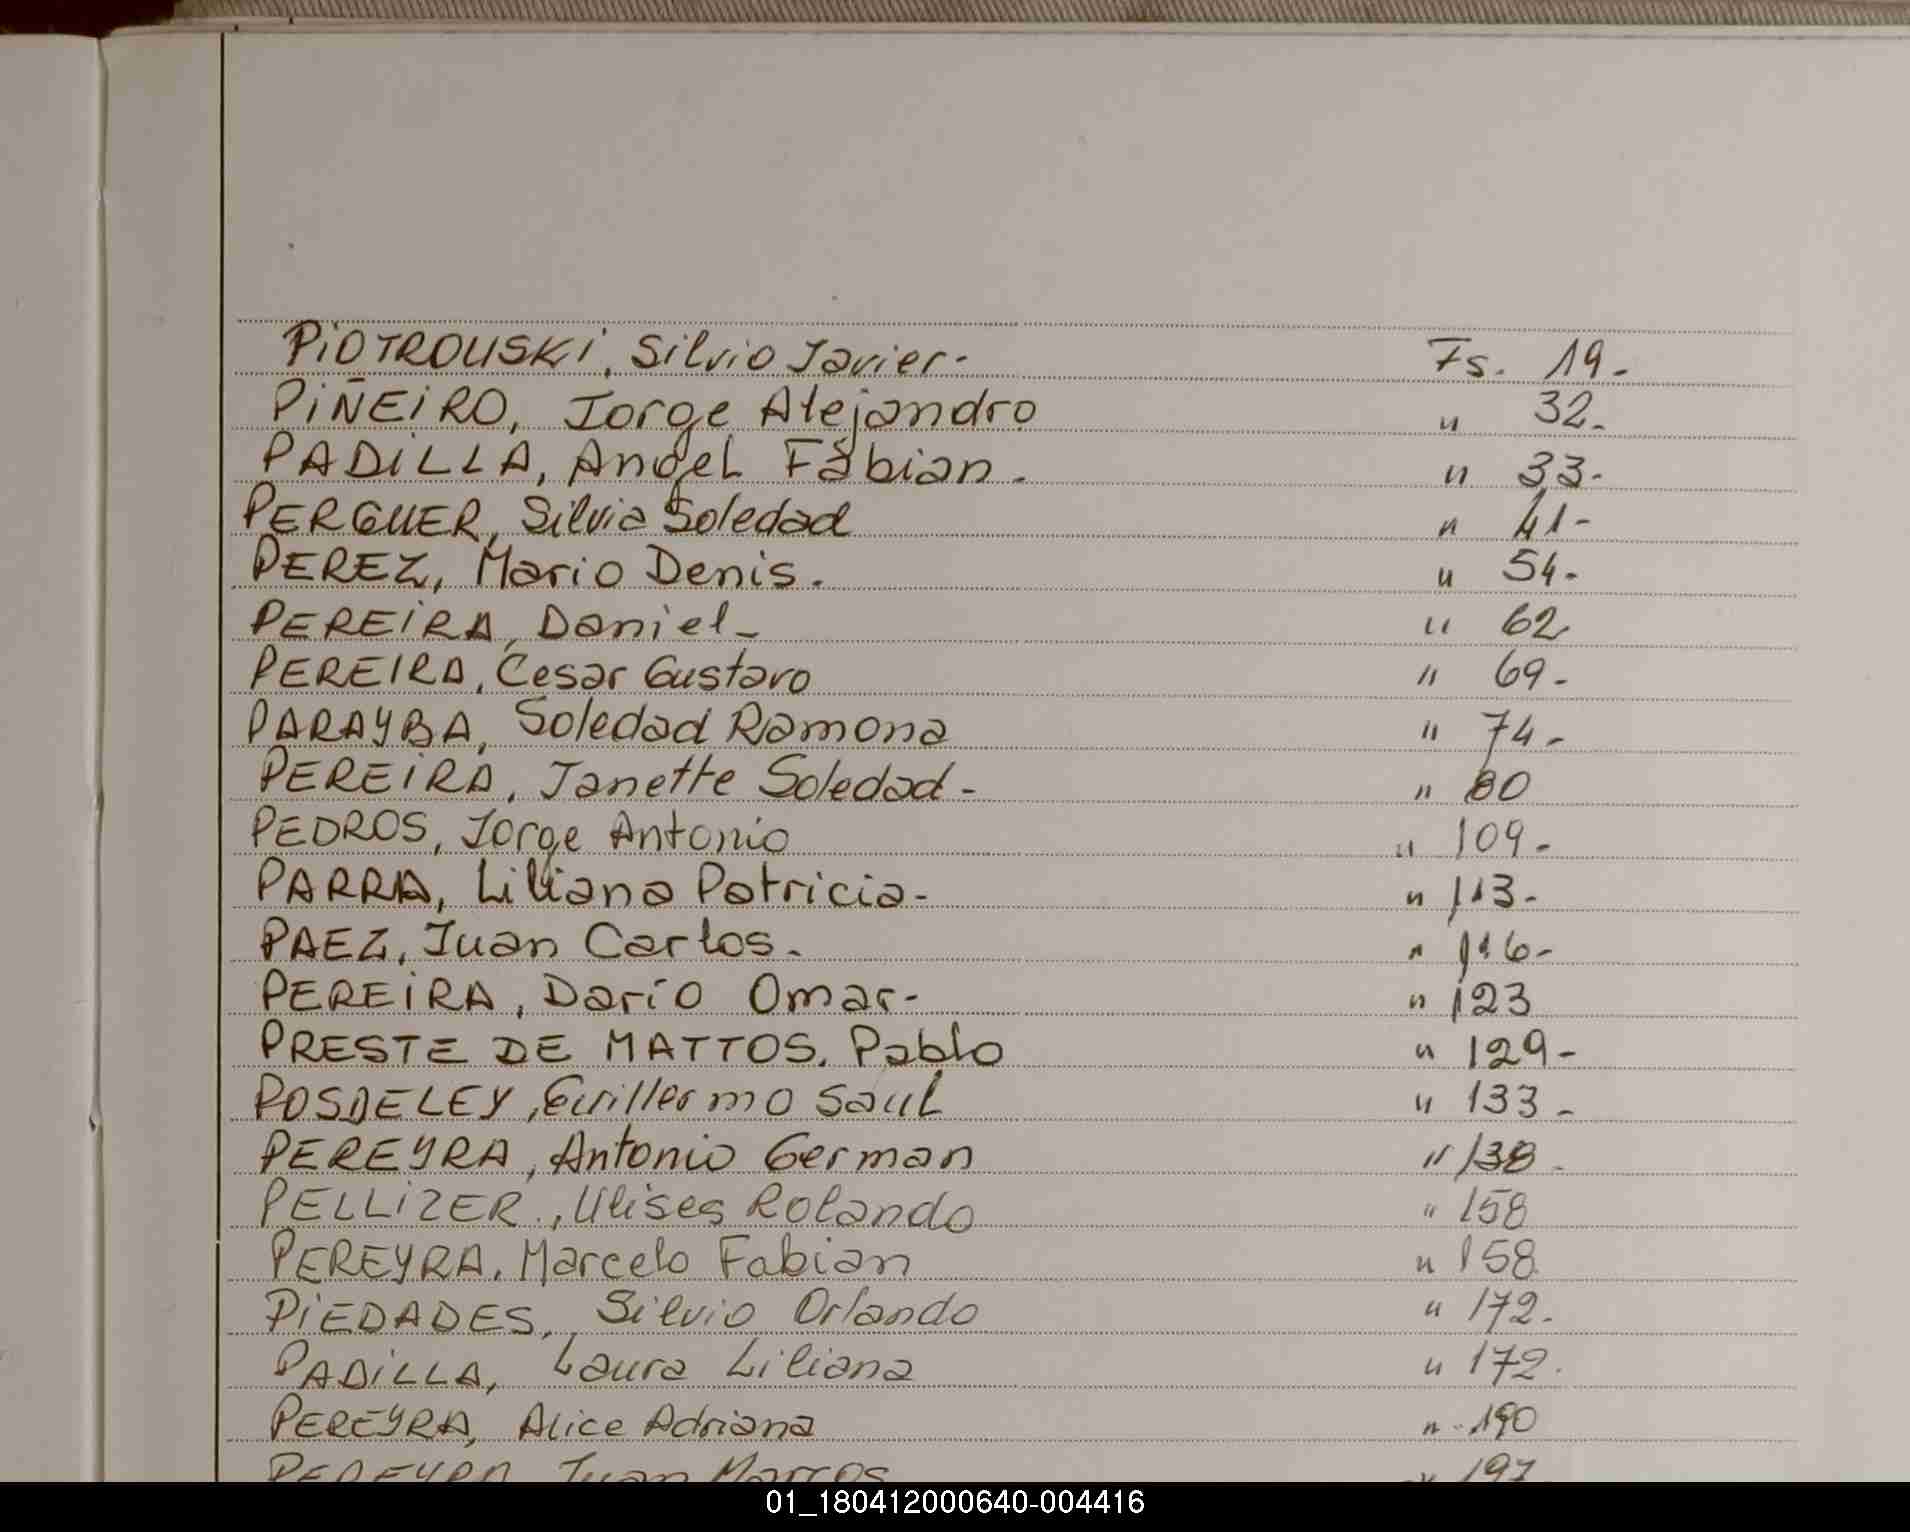 PIOTROUSKI, Silvio Javier- Fs. 19.-
PIÑEIRO, Jorge Alejandro " 32.-
PADILLA, Angel Fabian. " 33.-
PERGUER, Silvia Soledad " 41-
PEREZ, Mario Denis. " 54.-
PEREIRA, Daniel- " 62
PEREIRA, Cesar Gustavo " 69-
PARAYBA, Soledad Ramona " 74-
PEREIRA, Janette Soledad- " 80
PEDROS, Jorge Antonio " 109-
PARRA, Liliana Patricia- " 113-
PAEZ, Juan Carlos. " 116-
PEREIRA, Darío Omar- " 123
PRESTE DE MATTOS, Pablo " 129-
POSDELEY, Guillermo Saul " 133-
PEREYRA, Antonio German " 138-
PELLIZER, Ulises Rolando " 158
PEREYRA, Marcelo Fabian " 158
PIEDADES, Silvio Orlando " 172.
PADILLA, Laura Liliana " 172.
PEREYRA, Alice Adriana " 190
PEREYRA Juan Marcos " 197
01_180412000640-004416